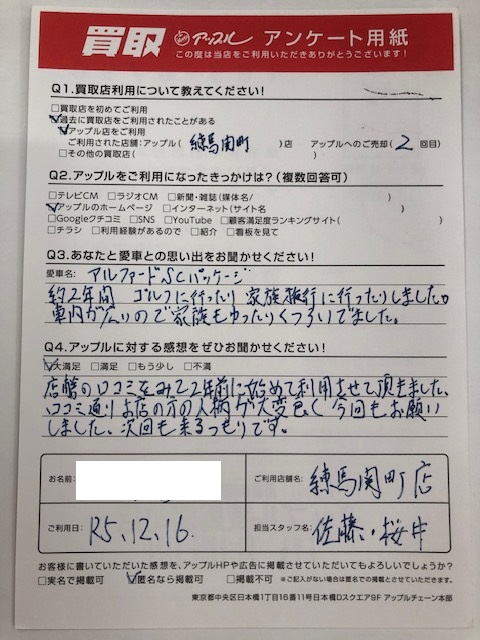 買取 アップル アンケート用紙
この度は当店をご利用いただきありがとうございます!
Q1.買取店利用について教えてください!
□買取店を初めてご利用
☑過去に買取店をご利用されたことがある
☑アップル店をご利用
ご利用された店舗:アップル( 練馬関町 )店 アップルへのご売却( 2 回目)
□その他の買取店( )
Q2.アップルをご利用になったきっかけは?(複数回答可)
□テレビCM □ラジオCM □新聞・雑誌(媒体名/ )
☑アップルのホームページ □インターネット(サイト名 )
□Googleクチコミ □SNS □YouTube □顧客満足度ランキングサイト( )
□チラシ □利用経験があるので □紹介 □看板を見て
Q3.あなたと愛車との思い出をお聞かせください!
愛車名: アルファードSCパッケージ
約2年間 ゴルフに行ったり家族旅行に行ったりしました。
車内が広いので家族もゆったりくつろいでました。
Q4.アップルに対する感想をぜひお聞かせください!
☑大満足 □満足 □もう少し □不満
店舗の口コミをみて2年前に始めて利用させて頂きました、
口コミ通りお店の方の人柄が大変良く今回もお願い
しました、次回も来るつもりです。
お名前:
ご利用店舗名: 練馬関町店
ご利用日: R5.12.16.
担当スタッフ名: 佐藤・桜井
お客様に書いていただいた感想を、アップルHPや広告に掲載させていただいてもよろしいでしょうか?
□実名で掲載可 ☑匿名なら掲載可 □掲載不可 ※ご記入がない場合は匿名での掲載とさせていただきます。
東京都中央区日本橋1丁目16番11号日本橋Dスクエア9F アップルチェーン本部